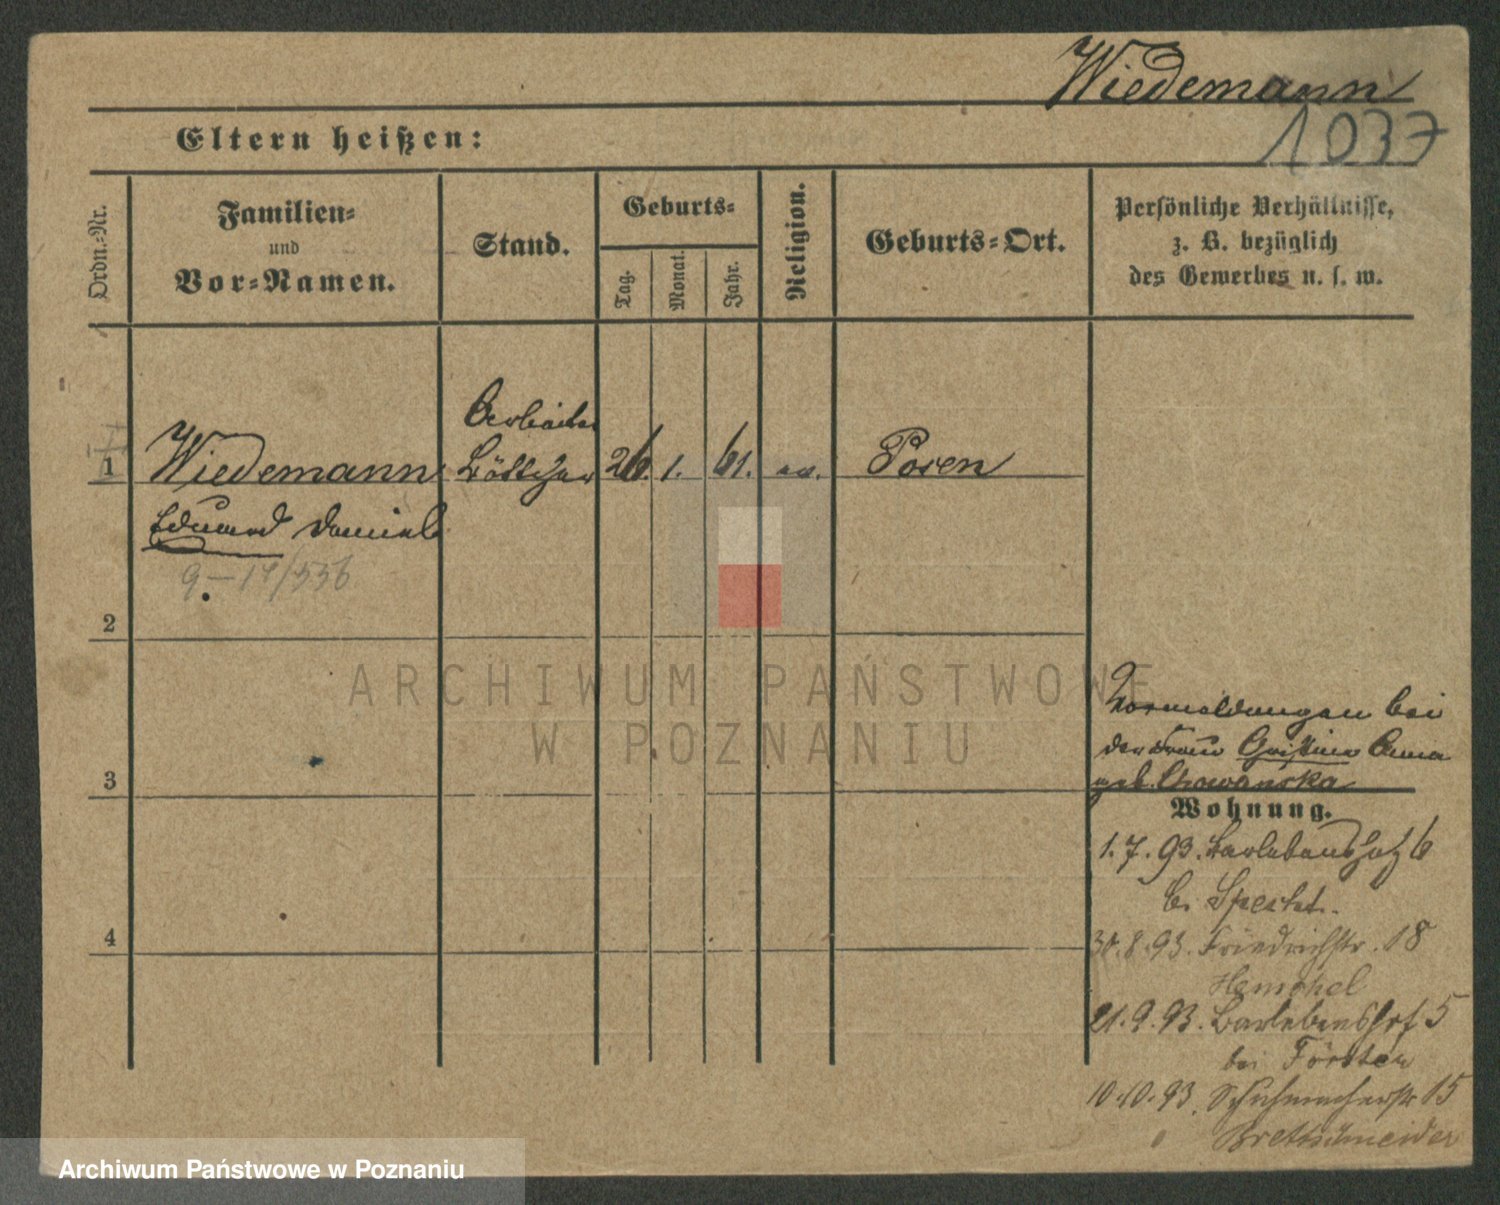 Wiedemann
1037
Eltern heißen:
Ordn.-Nr.
Familien-
und
Vor-Namen.
Stand.
Geburts-
Tag.
Monat.
Jahr.
Religion.
Geburts-Ort.
Persönliche Verhältnisse,
z. B. bezüglich
des Gewerbes u. s. w.
Arbeiter
1 Wiedemann Böttcher 26. 1. 61. ev. Posen
Eduard Daniel
9-17/536
2
ARCHIWUM PAŃSTWOWE
W POZNANIU
3
4
Vormeldungen bei
der Frau Anna
geb. Chowanska
Wohnung.
1.7.93. Bartebenshof 6
b.
30.8.93. Friedrichstr. 18
Hemshel
21.9.93. Bartebenshof 5
bei Förster
10.10.93. Schuhmacherstr 15
Brettschneider
Archiwum Państwowe w Poznaniu